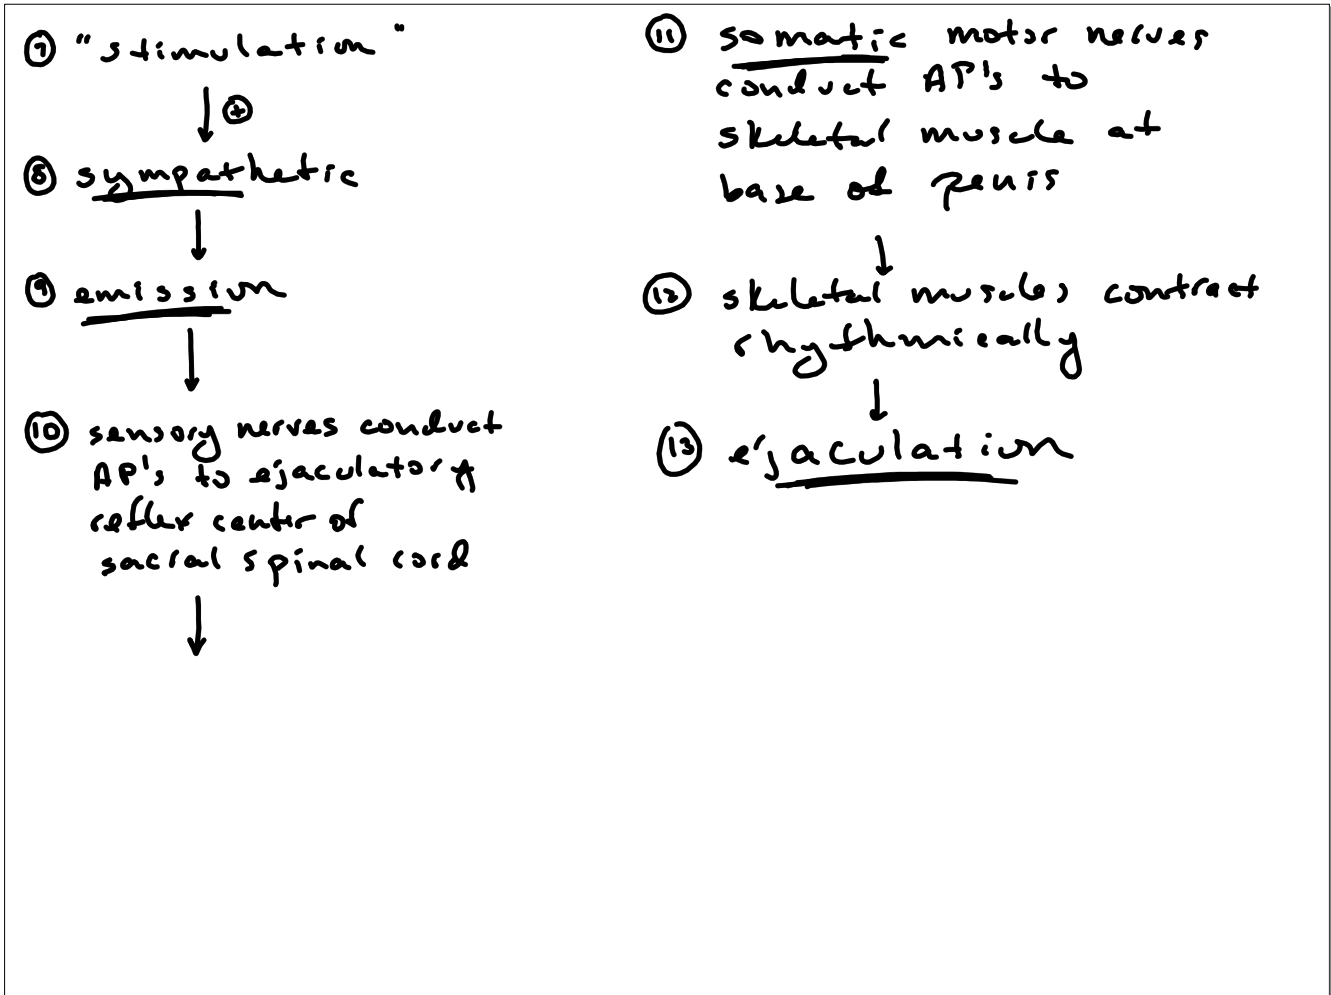 ⑦ "stimulation"
↓ ⊕
⑧ sympathetic
↓
⑨ emission
↓
⑩ sensory nerves conduct
AP's to ejaculatory
reflex center of
sacral spinal cord
↓
⑪ somatic motor nerves
conduct AP's to
skeletal muscle at
base of penis
↓
⑫ skeletal muscles contract
rhythmically
↓
⑬ ejaculation